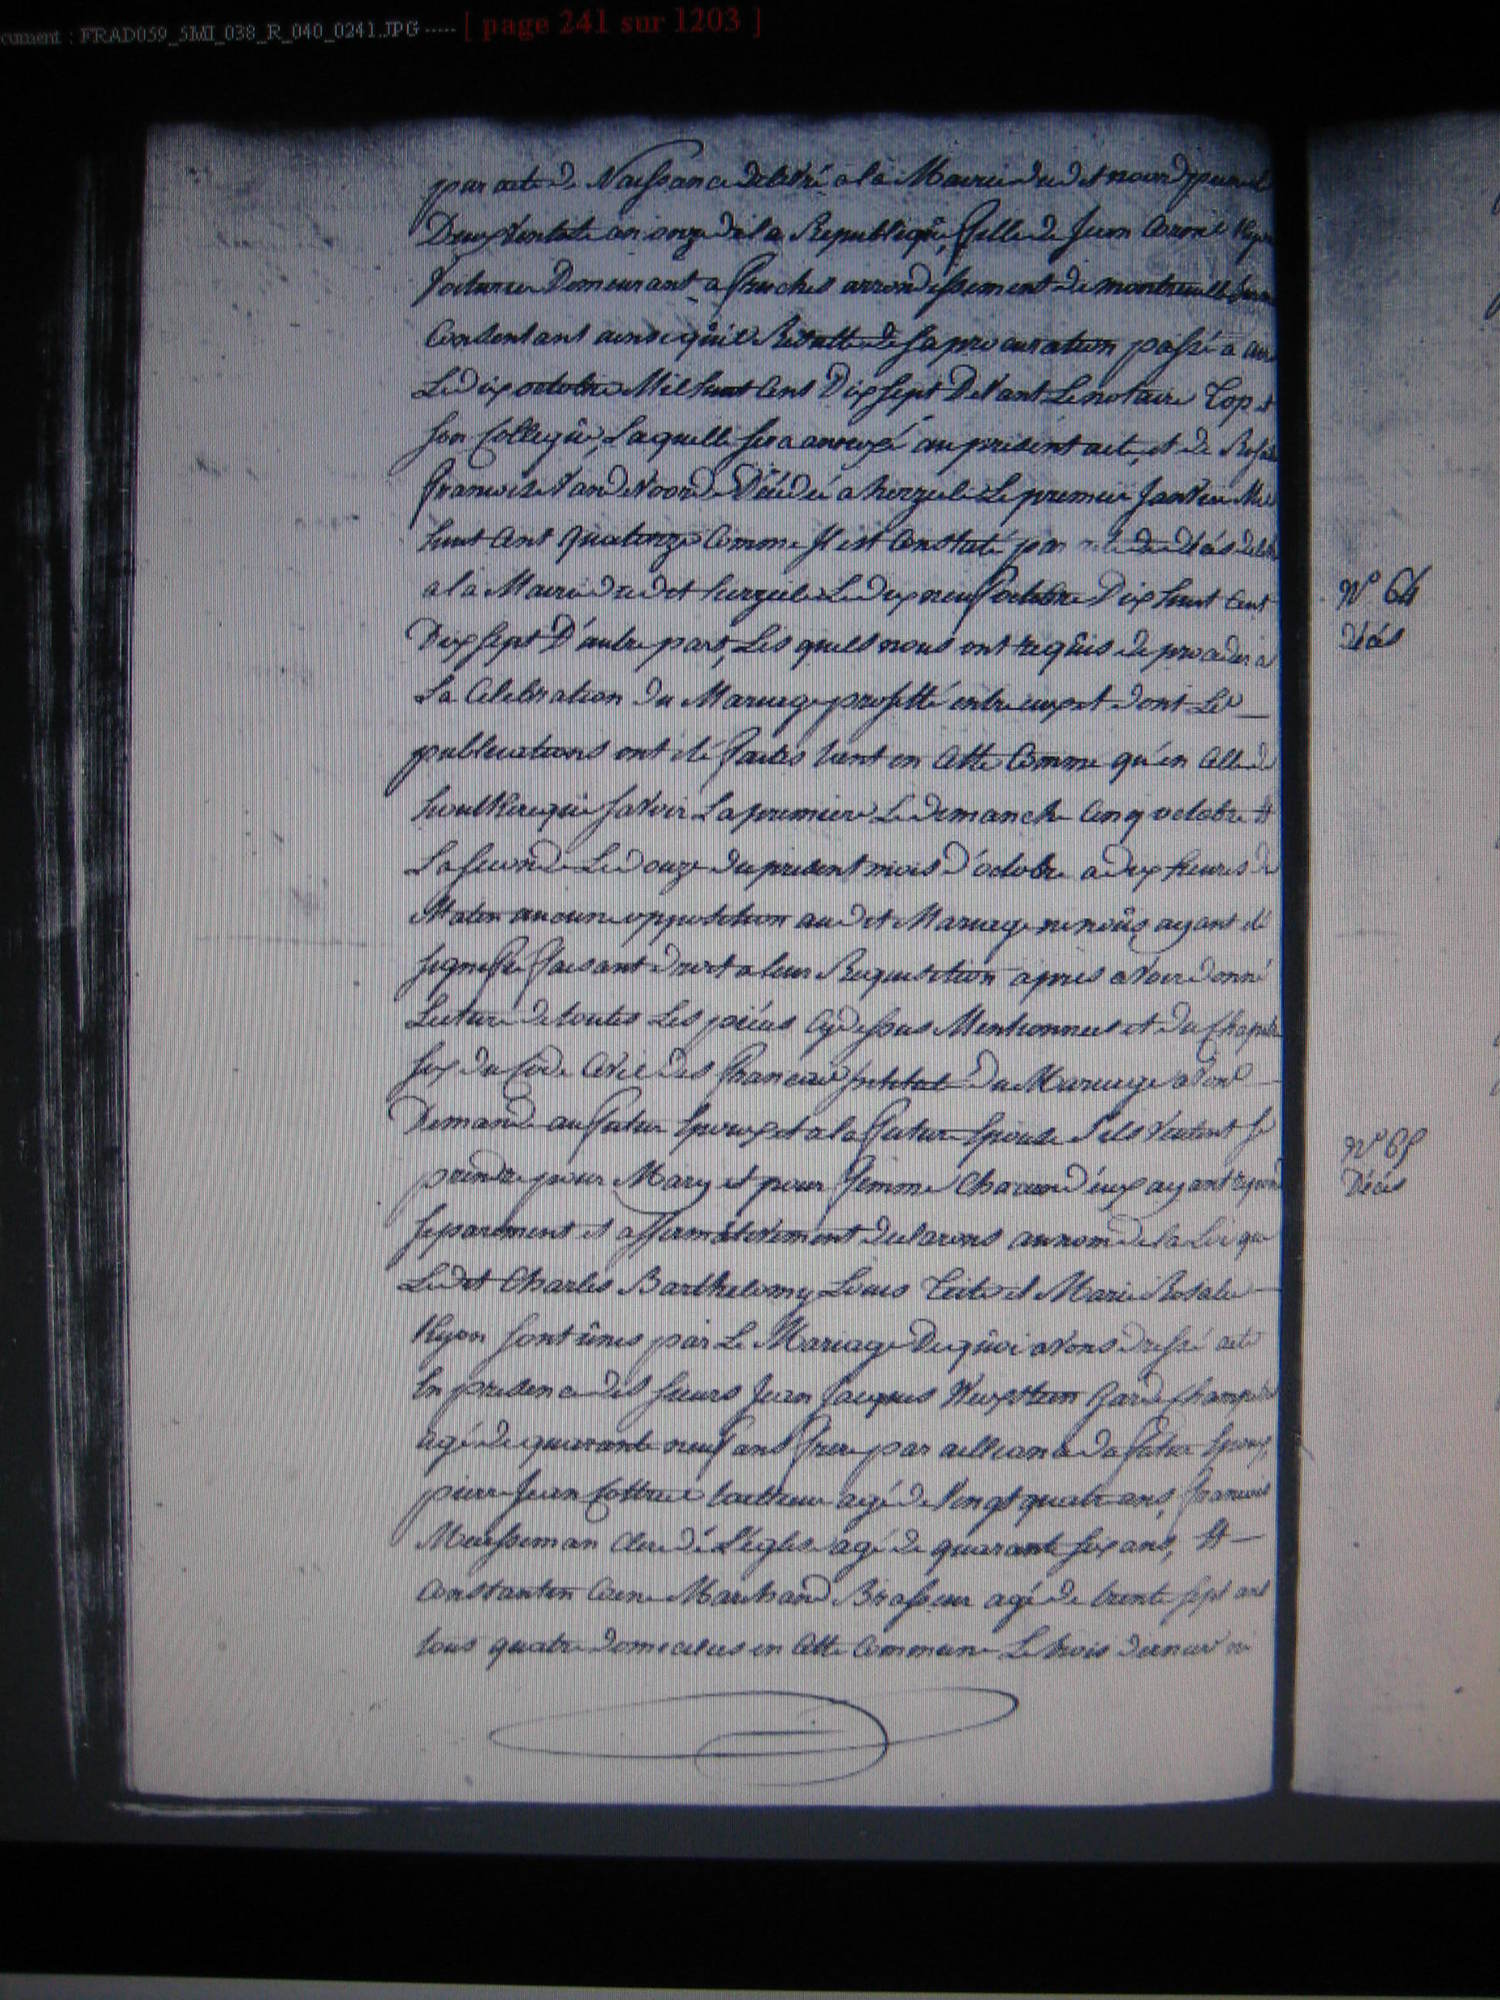 cument : FRAD059_5MI_038_R_040_0241.JPG ----- [ page 241 sur 1203 ]
par acte de Naissance delivré a la Mairie du dit
Deux Ventose an onze de la Republique, fille de Jean
Voiturier Demeurant a fruches arrondissement de montreuille
Consentant ainsi qu'il Resulte de sa procuration passé a
Le dix octobre Mil huit Cent Dix sept Devant Le notaire Top et
son Collegûe, Laquelle sera annexé au present acte, et de
francoise Vande Noorde Décédée a herzeele Le premier Janvier Mil
huit Cent quatorze Comme Il est Constaté par acte de décès
a la Mairie du dit herzeele Le dix neuf octobre Dix huit Cent
Dix sept D'autre part, Les quels nous ont reqûis de proceder a
La Celebration du Mariage projetté entre eux et dont Les
publications ont été faites tant en Cette Comme qu'en Celle de
savoir La premiere Le dimanche Cinq octobre Et
La seconde Le douze du present mois d'octobre a dix heures du
Matin aucune opposition au dit Mariage ne noûs ayant été
signifié faisant droit a leur Requisition apres avoir donné
Lecture de toutes Les pièces Cy dessus Mentionnees et du Chapitre
six du Code Civil des francais Intitulé du Mariage avons
Demandé au futur Epoux et a la future Epouse s'ils veulent se
prendre pour Mary et pour femme Chacun d'eux ayant
separement et affirmativement declarons au nom de la Loi que
Ledit Charles Barthelomy Louis et Marie Rosalie
sont ûnis par Le Mariage De qûoi avons dressé acte
En presence des sieurs Jean Jacques Garde Champetre
agé de quarante neuf ans frere par alliance du futur Epoux,
pierre Jean agé de Vingt quatre ans, francois
Clerc de L'eglise agé de quarante six ans, Et
Constantin Marchand Brasseur agé de trente sept ans
tous quatre domicilies en Cette Commune Le trois
N° 64
décès
N° 65
Décès